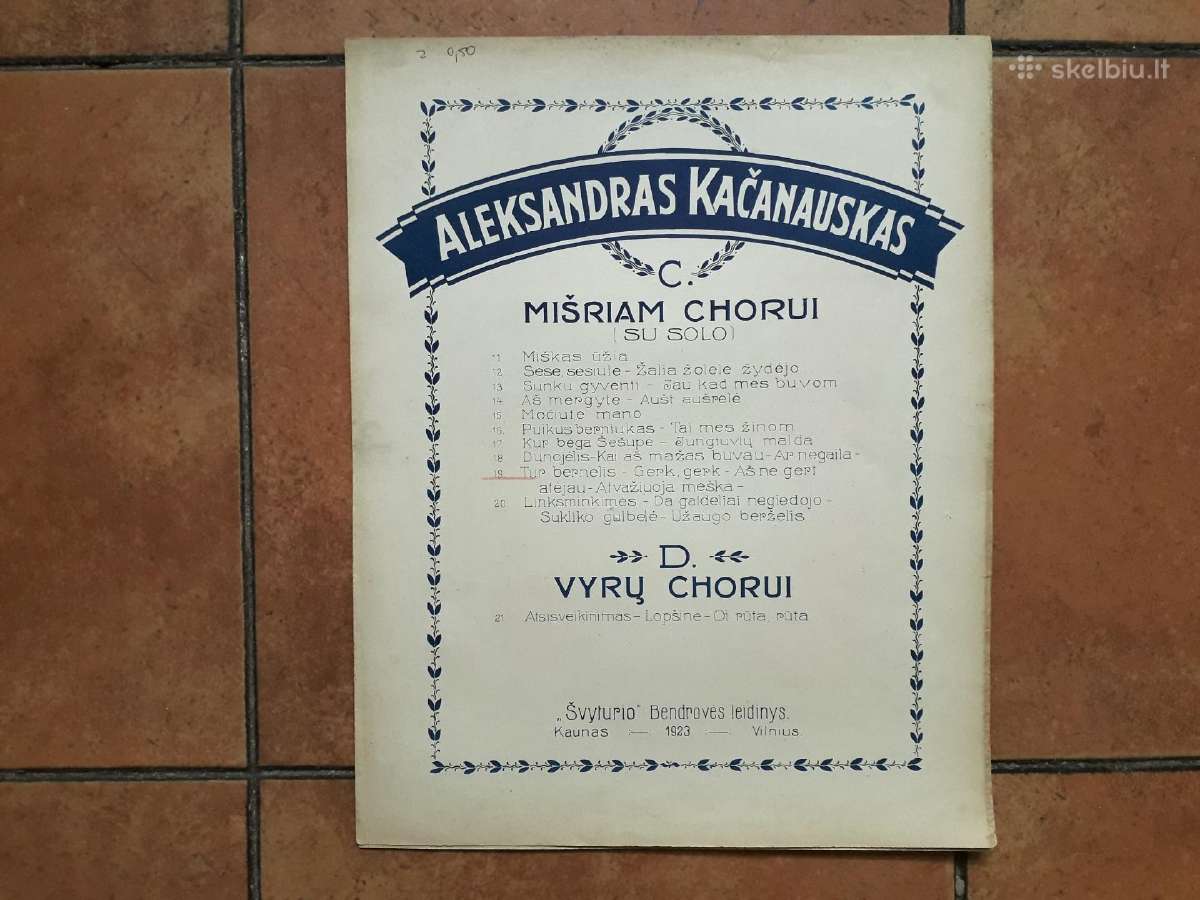 z 0,50
skelbiu.lt
ALEKSANDRAS KAČANAUSKAS
C.
MIŠRIAM CHORUI
(SU SOLO)
11. Miškas ūžia
12. Sesė, sesiulė - Žalia žolelė žydėjo
13. Sunku gyventi - Jau kad mes buvom
14. Aš mergytė - Aušt aušrelė
15. Močiutė mano
16. Puikus berniukas - Tai mes žinom
17. Kur bėga Šešupė - Jungtuvių malda
18. Dunojėlis - Kai aš mažas buvau - Ar negaila -
19. Tur bernelis - Gerk, gerk - Aš ne gert
atėjau - Atvažiuoja meška -
20. Linksminkimės - Da gaideliai negiedojo -
Sukliko gulbelė - Užaugo berželis
D.
VYRŲ CHORUI
21. Atsisveikinimas - Lopšinė - Oi rūta, rūta
„Švyturio" Bendrovės leidinys.
Kaunas — 1923 — Vilnius.